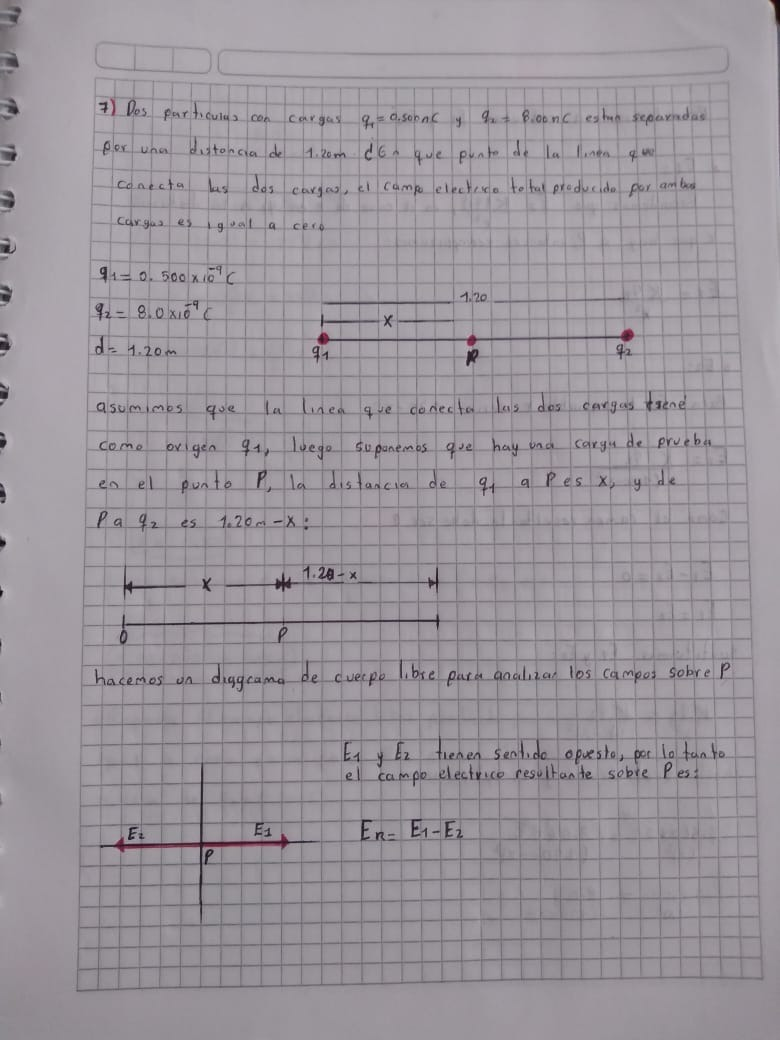 7) Dos particulas con cargas q1=0.500nC y q2= 8.00nC estan separadas
por una distancia de 1.20m d En que punto de la linea que
conecta las dos cargas, el campo electrico total producido por ambas
cargas es igual a cero
q1=0.500x10⁻⁹C
q2= 8.0x10⁻⁹C
d= 1.20m
1.20
x
q1 P q2
asumimos que la linea que conecta las dos cargas tiene
como origen q1, luego suponemos que hay una carga de prueba
en el punto P, la distancia de q1 a P es x, y de
P a q2 es 1.20m-x:
x 1.20-x
0 P
hacemos un diagrama de cuerpo libre para analizar los campos sobre P
E1 y E2 tienen sentido opuesto, por lo tanto
el campo electrico resultante sobre P es:
E2 E1 En= E1-E2
P